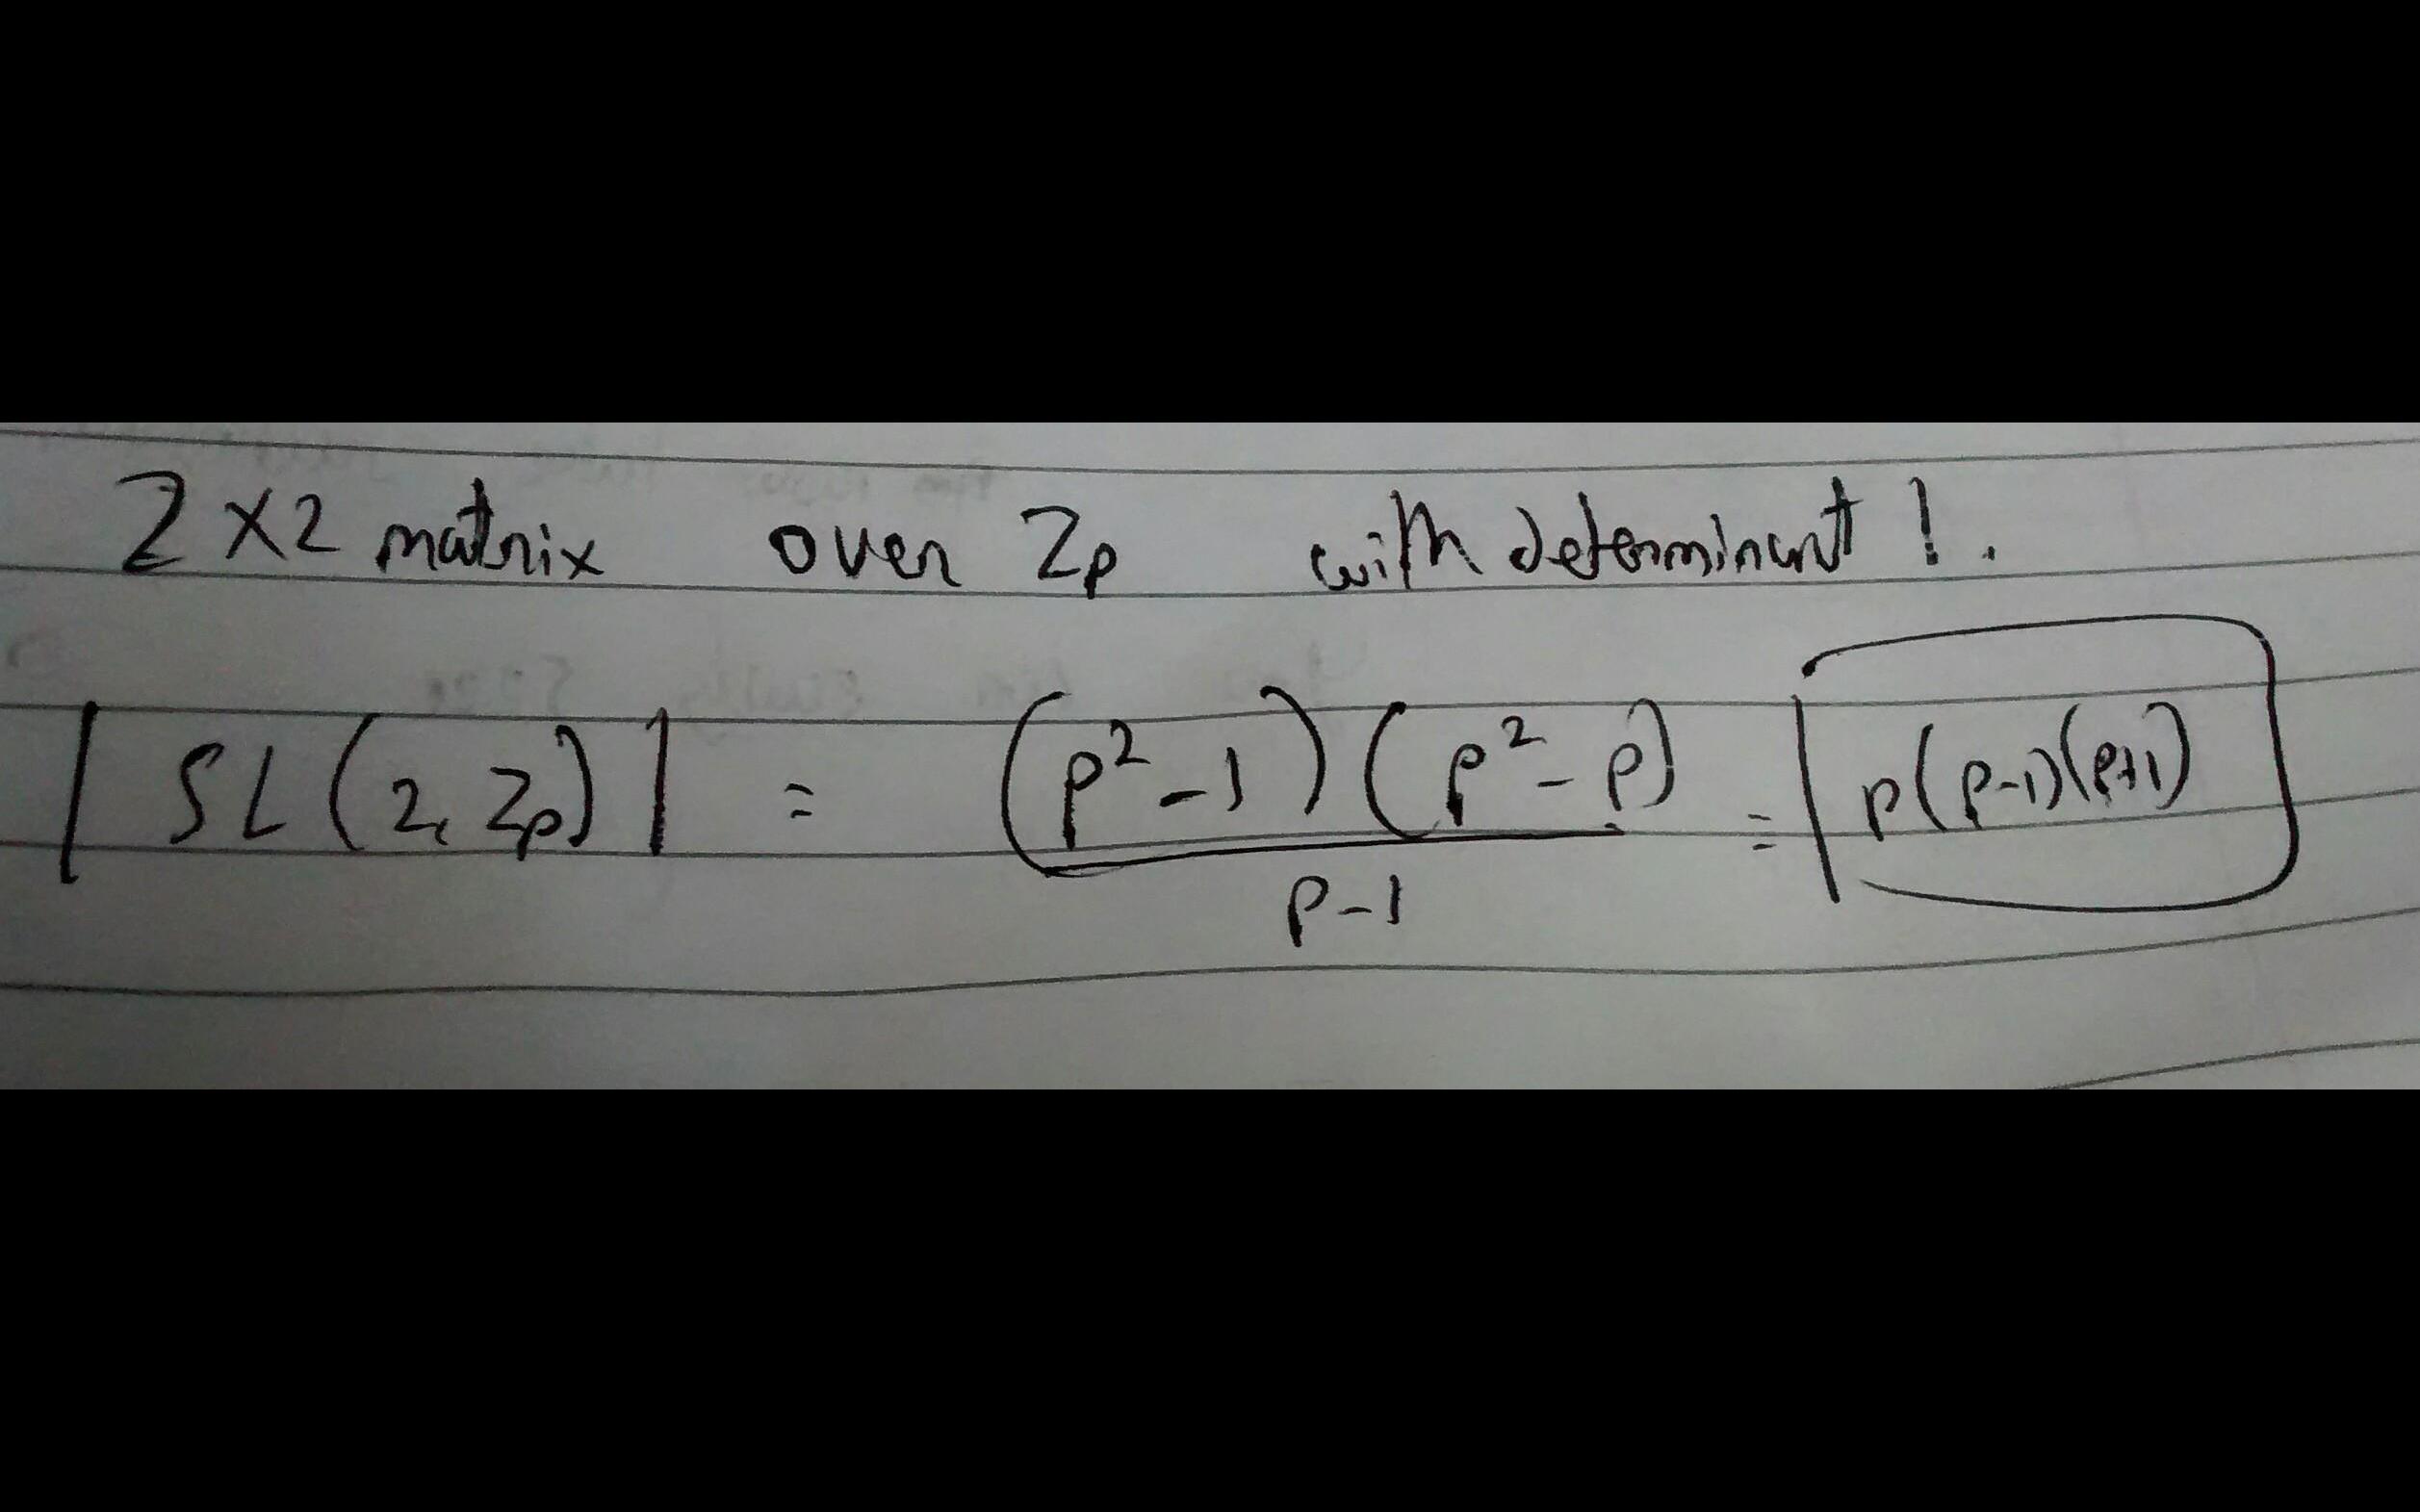 2 × 2 matrix over Zp with determinant 1.
|SL(2, Zp)| = (p² - 1)(p² - p) / p - 1 = p(p-1)(p+1)